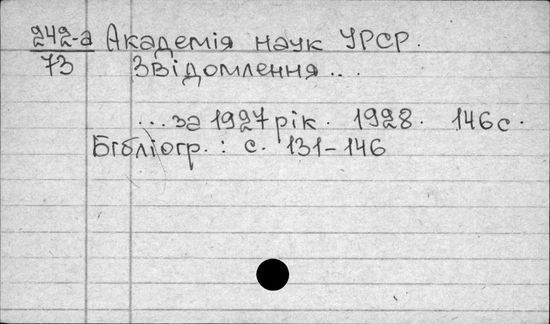 242-а Академія наук УРСР.
73 Звідомлення...
...за 1927 рік. 1928. 146 с.
Бібліогр.: с. 131-146